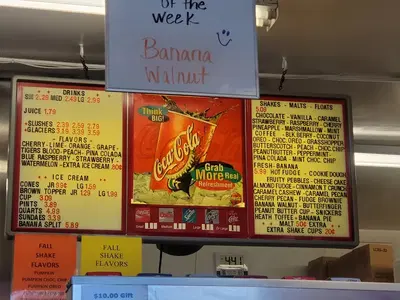 OF THE
Week
Banana
Walnut
DRINKS
2.29 MED 2.49 LG 2.99
JUICE 1.79
SLUSHES 2.39 2.59 2.79
GLACIERS 3.19 3.39 3.59
- FLAVORS -
CHERRY - LIME - ORANGE - GRAPE -
TIGERS BLOOD - PEACH - PINA COLADA
BLUE RASPBERRY - STRAWBERRY -
WATERMELON - EXTRA SYRUP 20¢
ICE CREAM
CONES JR 93¢ LG 1.59
BROWN TOPPER JR 1.29 LG 1.98
CUP 3.09
PINTS 3.89
QUARTS 4.99
SUNDAES 3.39
BANANA SPLIT 5.89
Think
BIG!
Coca-Cola
Grab
More Real
Refreshment
SHAKES - MALTS - FLOATS
5.09
CHOCOLATE - VANILLA - CARAMEL
STRAWBERRY - RASPBERRY - CHERRY
PINEAPPLE - MARSHMALLOW - MINT
COFFEE - BLK BERRY - COCONUT
OREO - CHOC OREO - GRASSHOPPER
BUTTERSCOTCH - PEACH - CHOC CHIP
PEANUTBUTTER - PEPPERMINT
PINA COLADA - MINT CHOC CHIP
FRESH - BANANA
5.99 HOT FUDGE - COOKIE DOUGH
FRUITY PEBBLES - CHEESE CAKE
ALMOND FUDGE - CINNAMON T CRUNCH
CARAMEL CASHEW - CARAMEL PECAN
CHERRY PECAN - FUDGE BROWNIE
BANANA WALNUT - BUTTERFINGER
PEANUT BUTTER CUP - SNICKERS
HEATH TOFFEE - BANANA PIE
MALT 50¢ EXTRA
EXTRA SHAKE CUPS 20¢
FALL
SHAKE
FLAVORS
PUMPKIN
PUMPKIN CHOC CHIP
FALL
SHAKE
FLAVORS
441
$10.00 Gift